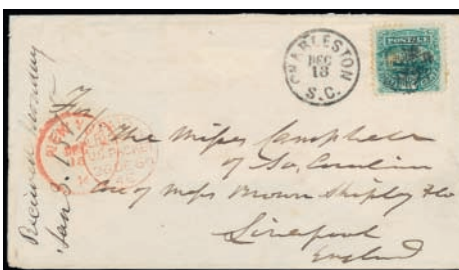 CHARLESTON
DEC
18
S.C.
POSTAGE
Received
Jan 3.
For
The Misses Campbell
of So. Carolina
Care of Messrs Brown Shipley & Co
Liverpool
England
NEW